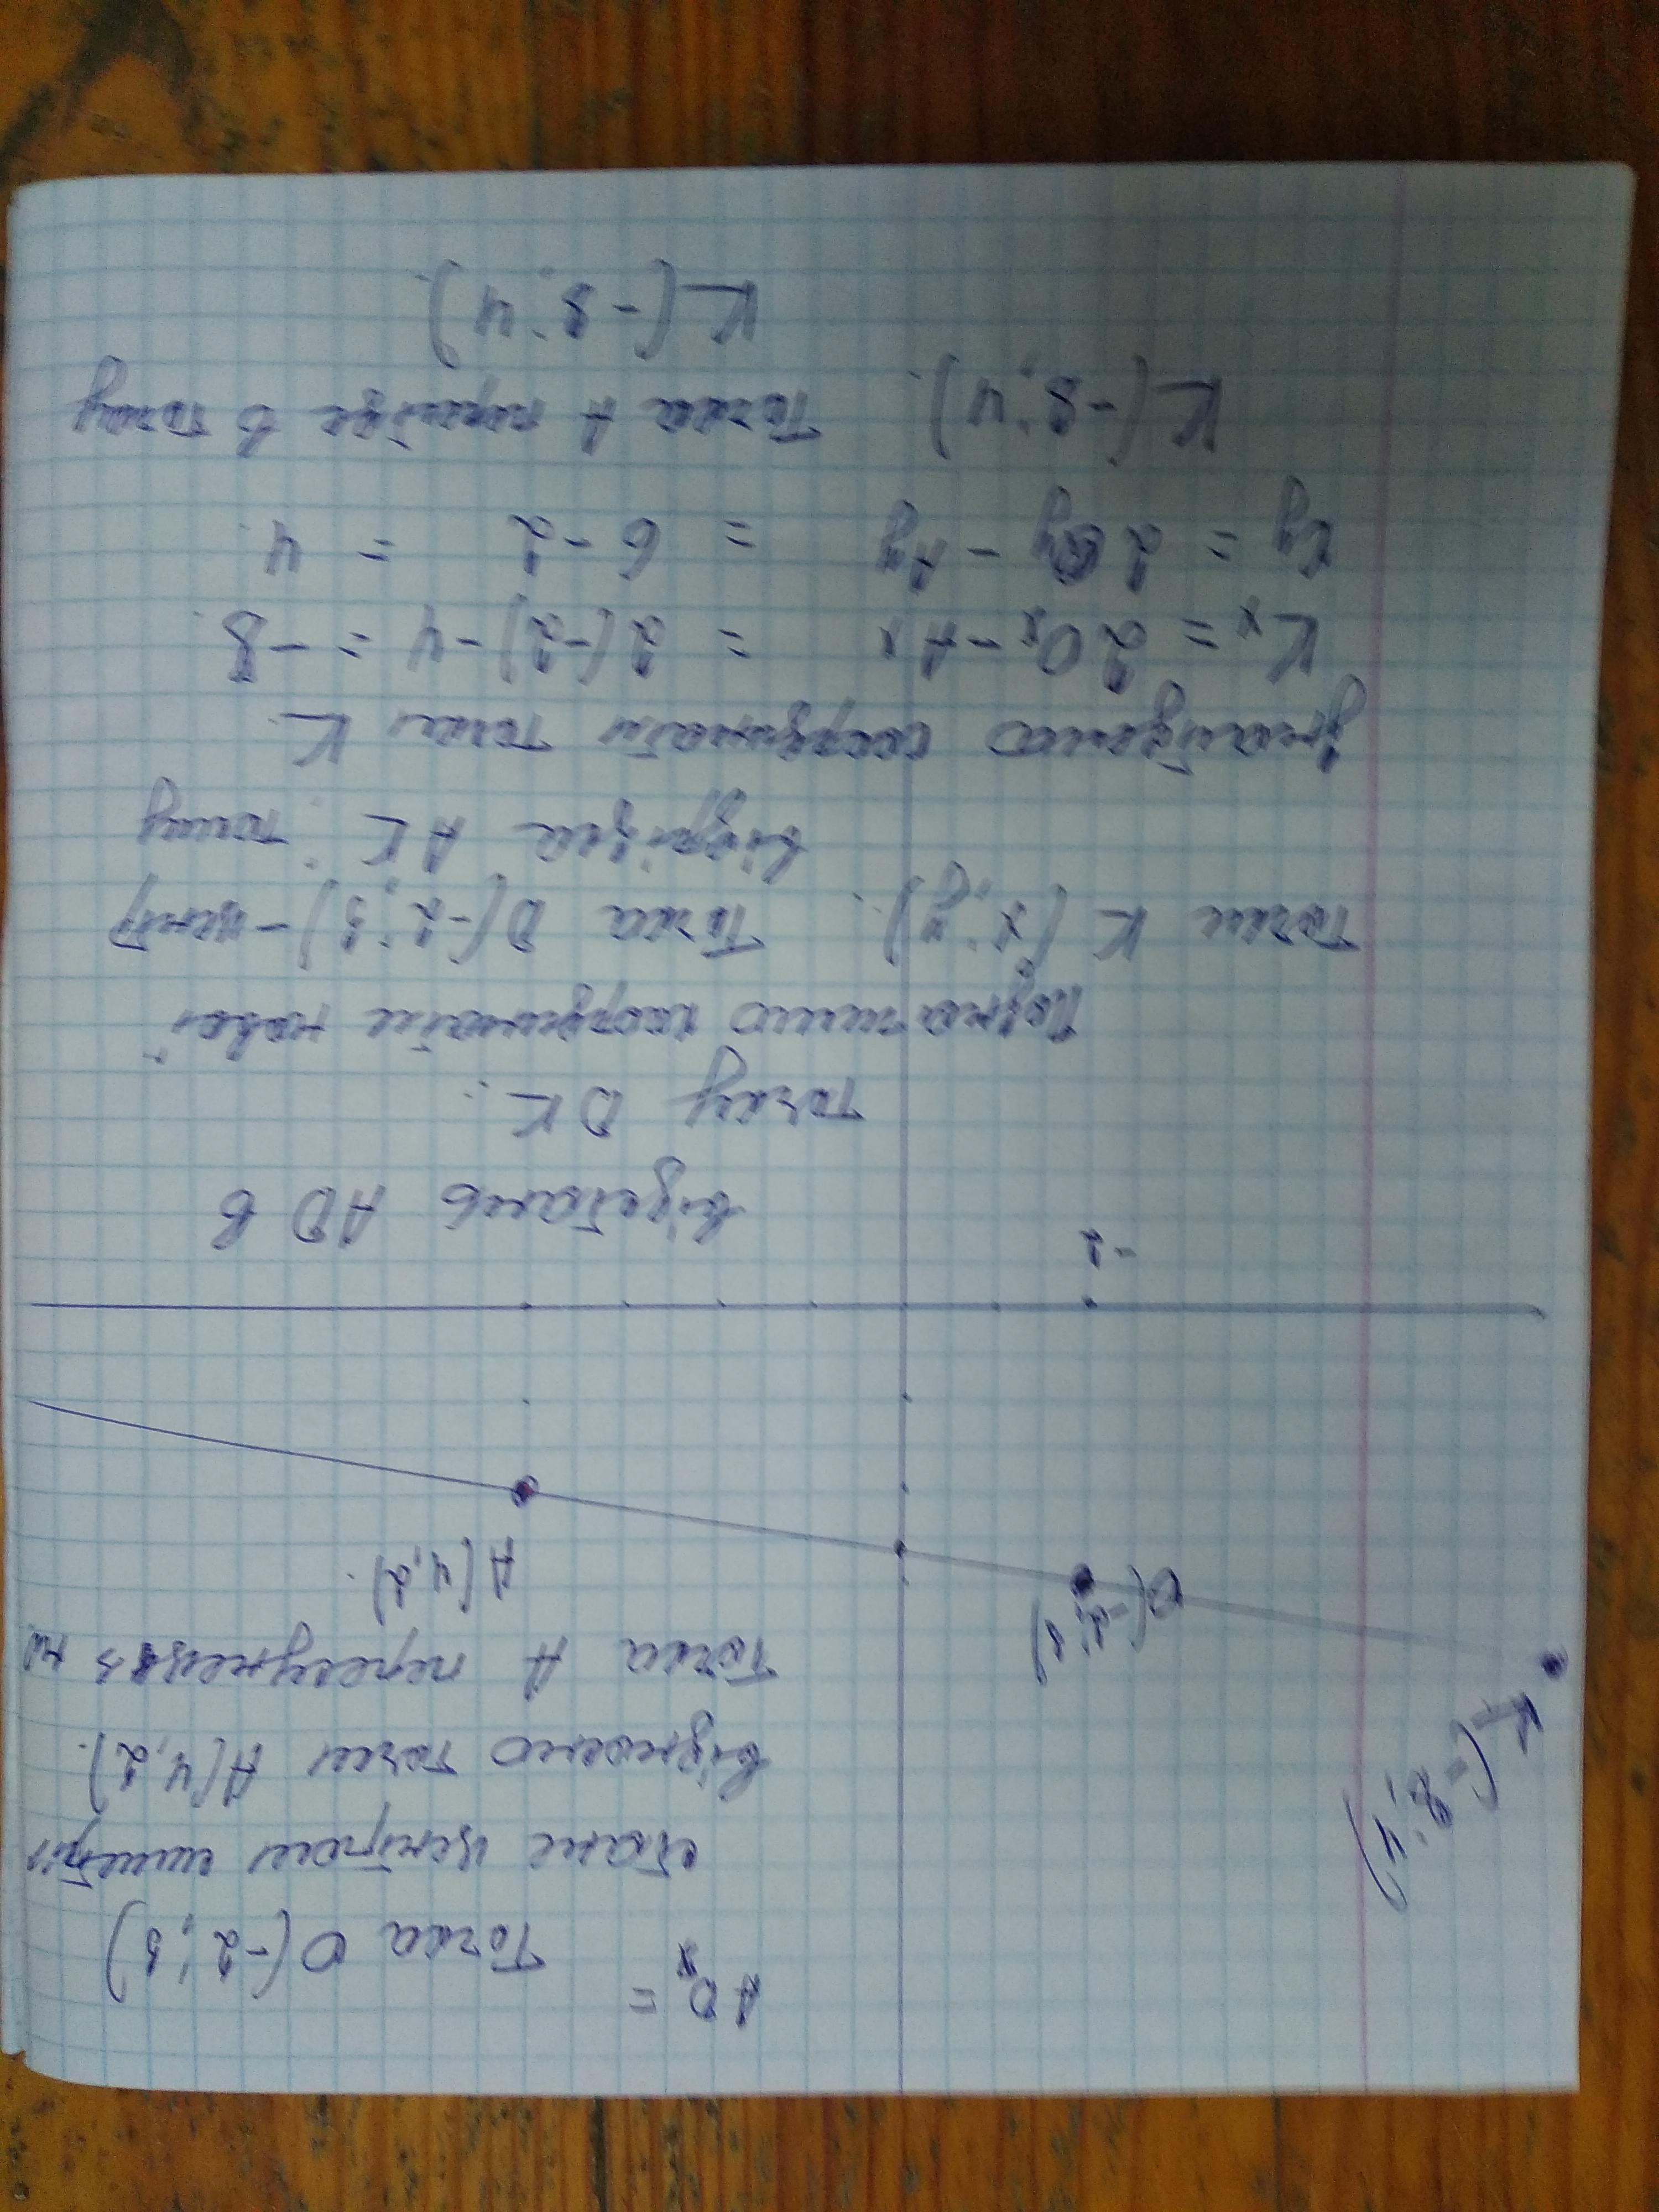 AOx = Точка О(-2; 3)
стане центром симетрії
відносно точки А(4, 2).
Точка А пересунеться на
К(-8; 4)
О(-2; 3)
А(4, 2).
-2
відстань АО в
точку ОК.
Позначимо координати нової
точки К (х; у). Точка О(-2; 3) - центр
відрізка АК тому
знайдемо координати точки К
Kx = 2Ox - Ax = 2(-2) - 4 = -8.
Ky = 2Oy - Ay = 6 - 2 = 4.
К(-8; 4). Точка А перейде в точку
К(-8; 4).